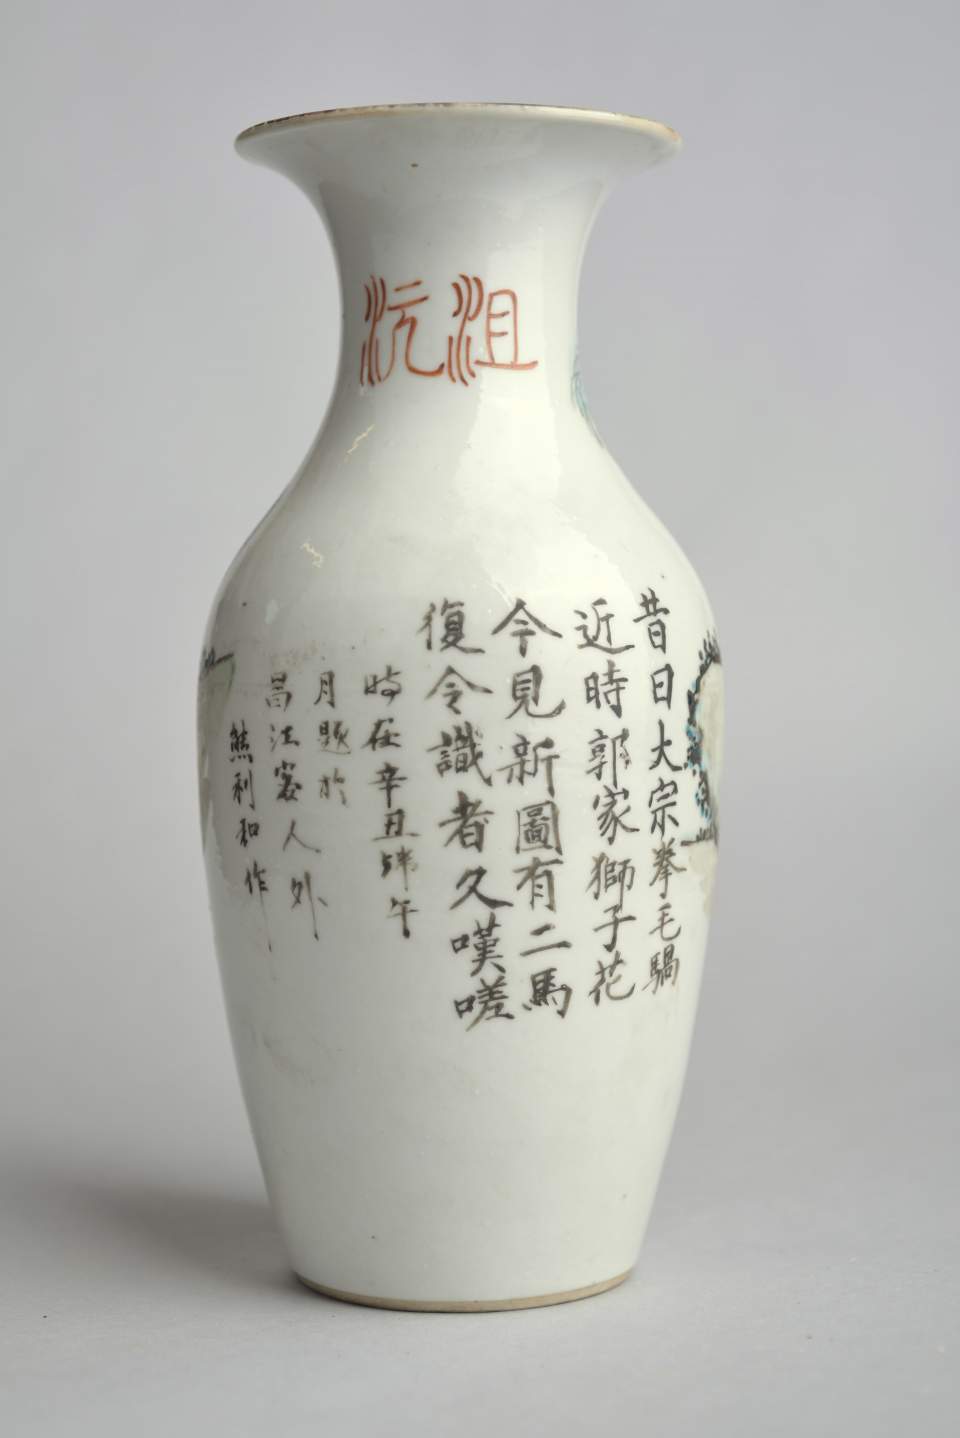 沮沅
昔日大宗拳毛騧
近時郭家獅子花
今見新圖有二馬
復令識者久嘆嗟
時在辛丑肆午
月題於
昌江客人外
熊利和作